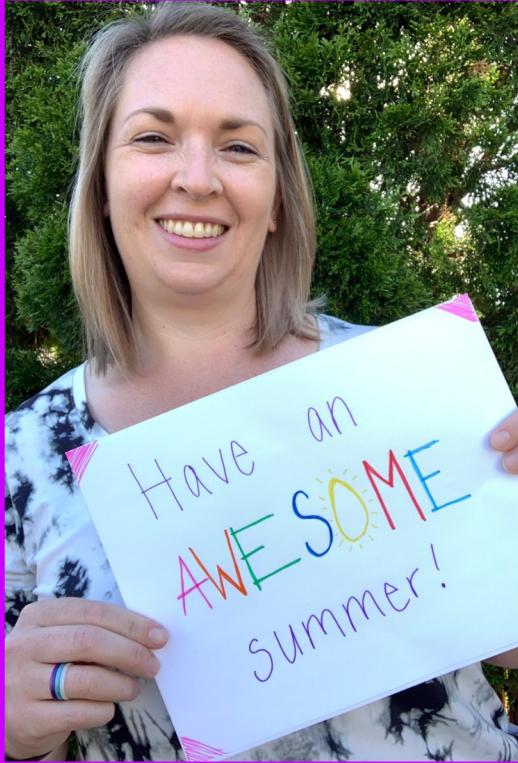 Have an
AWESOME
summer!